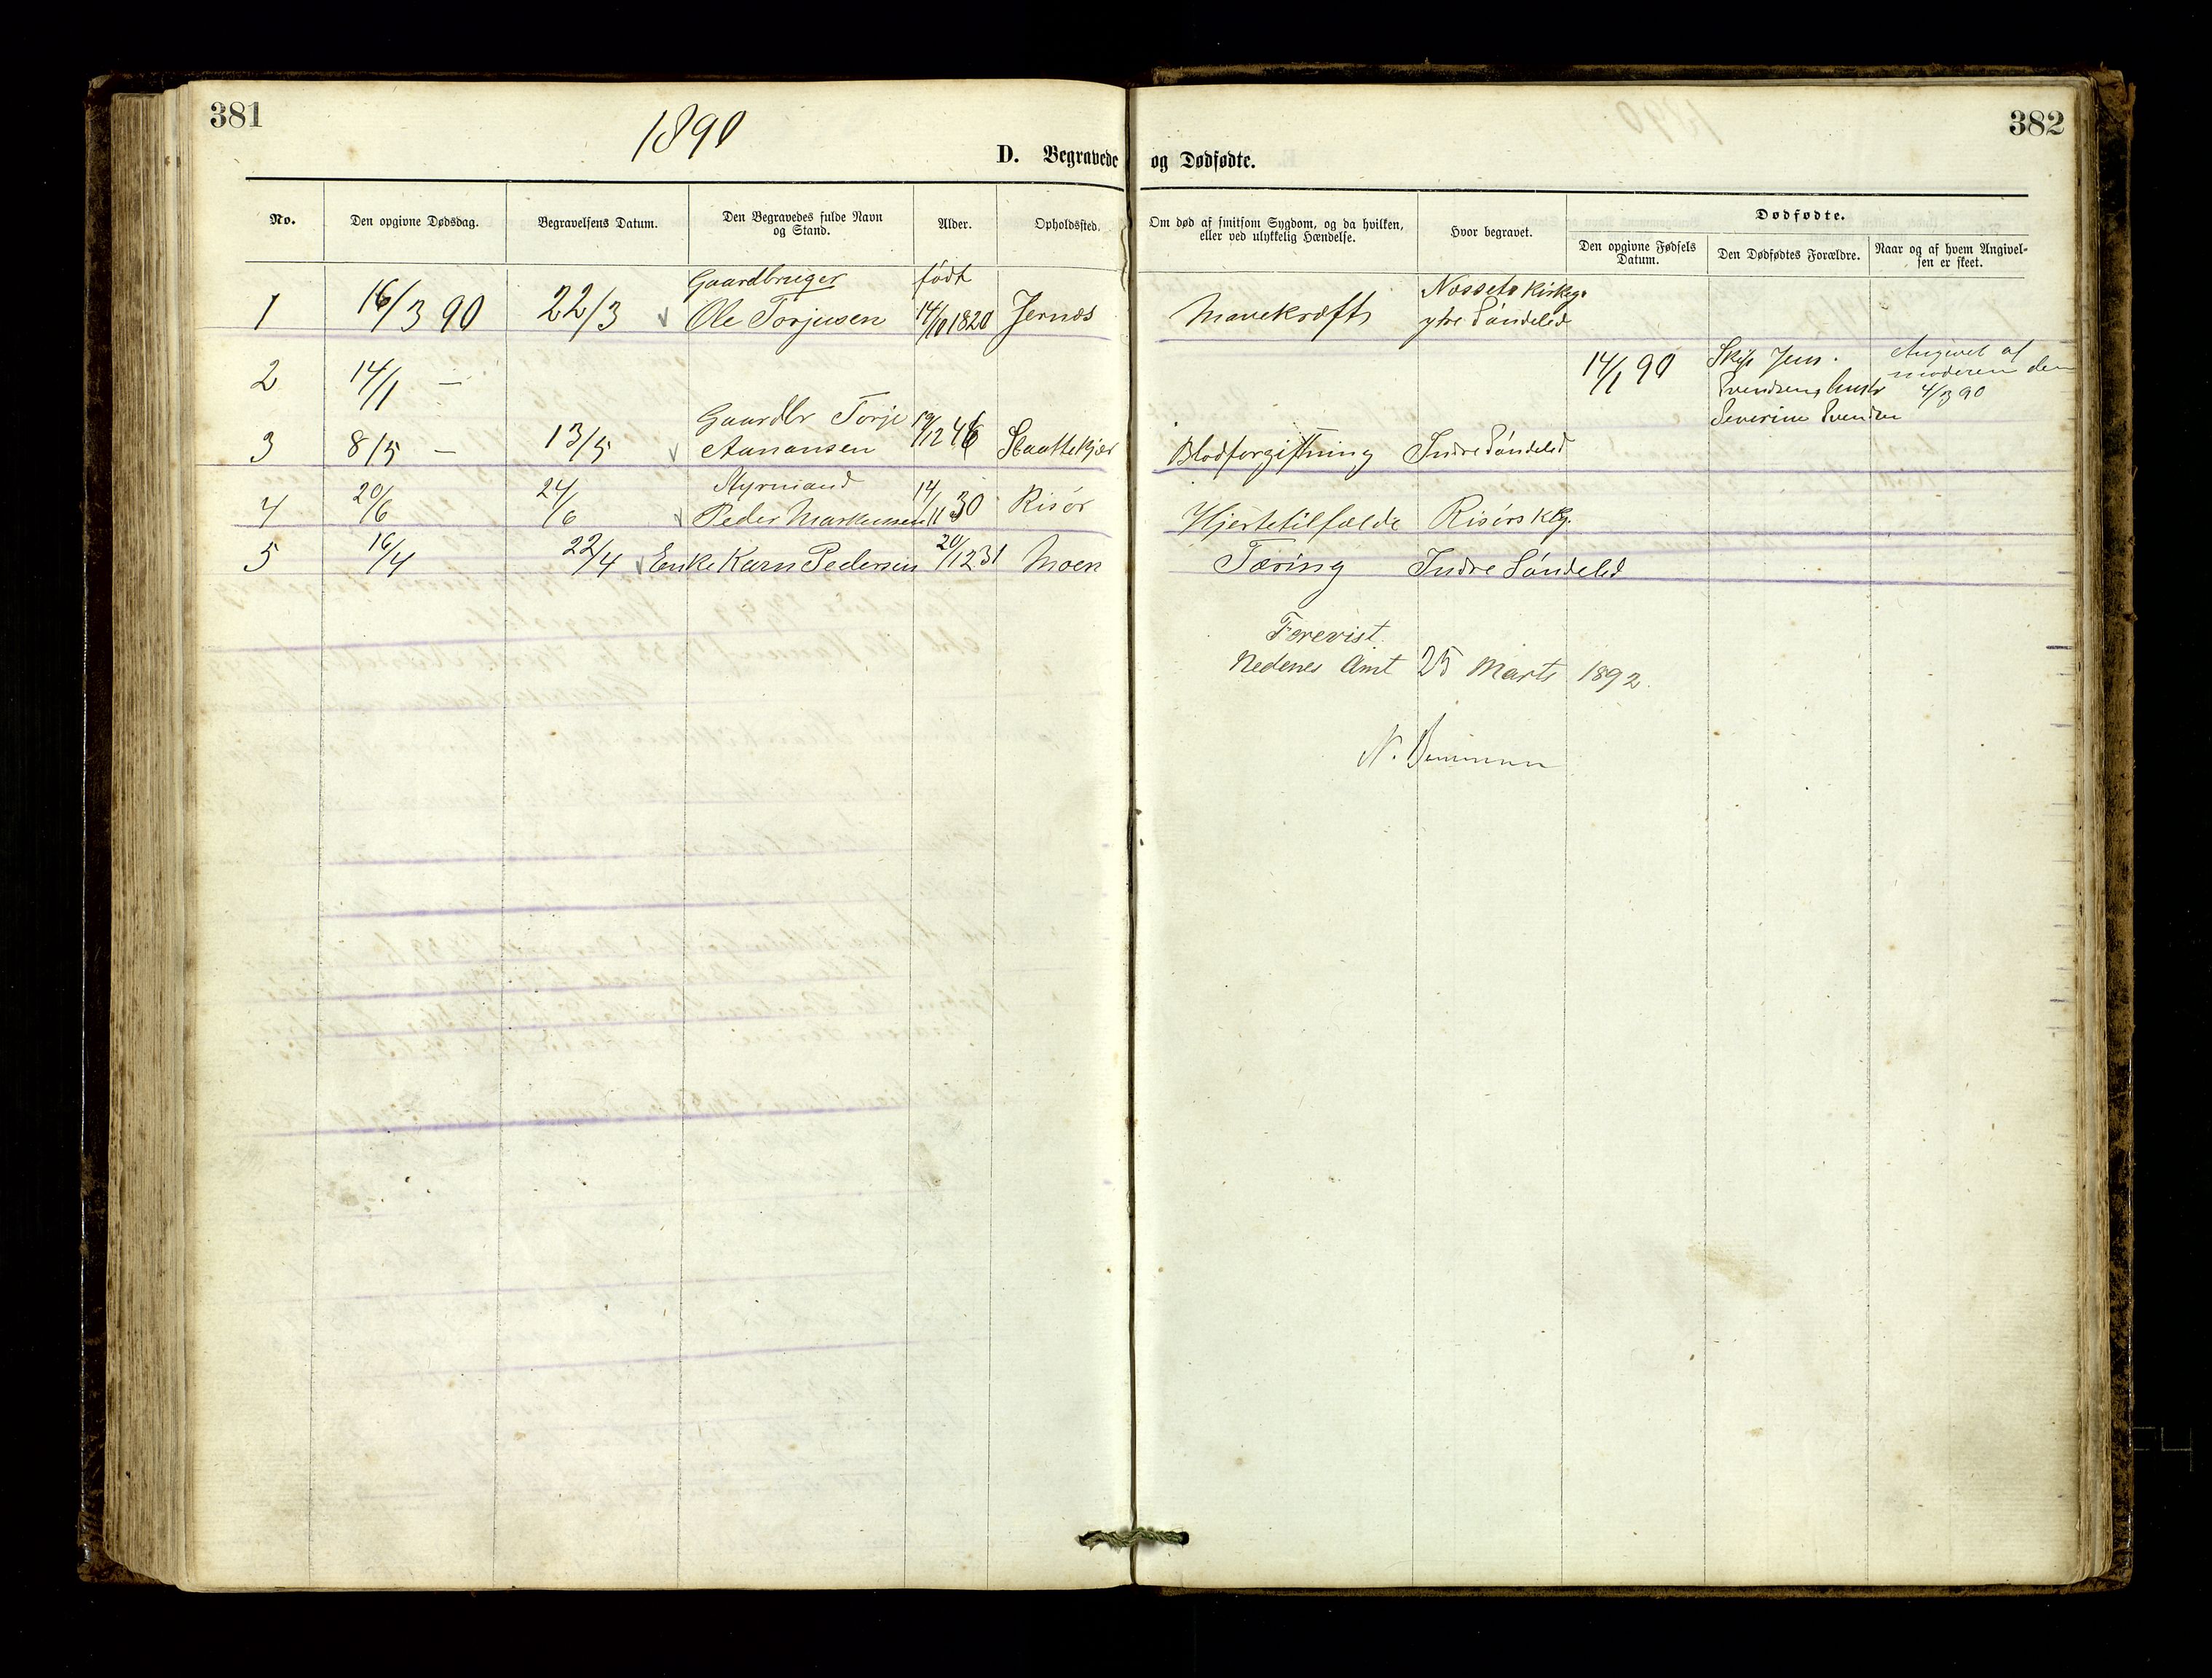 381
1890
D. Begravede
No.
Den opgivne Dødsdag.
Begravelsens Datum.
Den Begravedes fulde Navn
og Stand.
Alder.
Opholdssted.
Gaardbruger født
1 16/3 90 22/3 Ole Torjusen 1820 Jernæs
2 14/1 —
Gaardbr Torje 19/12 46
3 8/5 — 13/5 Aanansen
Styrmand
4 20/6 24/6 Peder Markussen 14/11 30 Risør
5 16/4 22/4 Enke Karen Pedersen 20/12 31 Moen
382
og Dødfødte.
Om død af smitsom Sygdom, og da hvilken,
eller ved ulykkelig Hændelse.
Hvor begravet.
Dødfødte.
Den opgivne Fødsels
Datum.
Den Dødfødtes Forældre.
Naar og af hvem Angivel-
sen er skeet.
Kirkeg.
Mavekræft ytre Søndeled
14/1 90 Jens Angivet af
Svendsens hustr moderen den
Severine Svendsen 4/3 90
Blodforgiftning Indre Søndeled
Hjertetilfælde Risørs Kkg.
Tæring Indre Søndeled
Forevist.
Nedenes Amt 25 Marts 1892.
N.